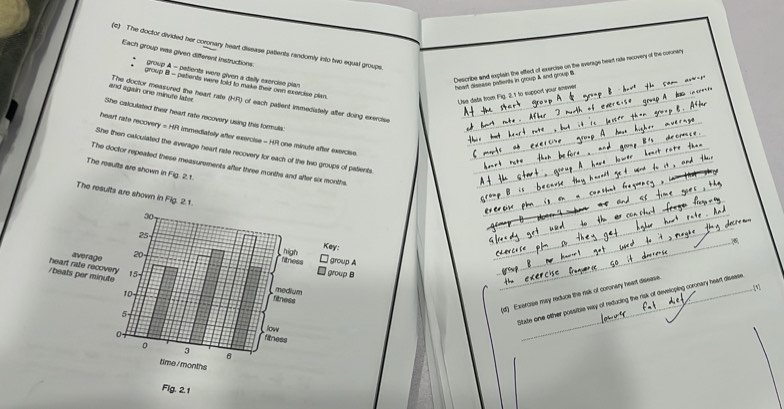 (c) The doctor divided her coronary heart disease patients randomly into two equal groups.
Each group was given different instructions:
• group A – patients were given a daily exercise plan
• group B – patients were told to make their own exercise plan.
The doctor measured the heart rate (HR) of each patient immediately after doing exercise
and again one minute later.
She calculated their heart rate recovery using this formula:
heart rate recovery = HR immediately after exercise – HR one minute after exercise
She then calculated the average heart rate recovery for each of the two groups of patients.
The doctor repeated these measurements after three months and after six months.
The results are shown in Fig. 2.1.
The results are shown in Fig. 2.1.
30
25
20
15
10
5
0
average
heart rate recovery
/ beats per minute
high
fitness
medium
fitness
low
fitness
Key:
group A
group B
0
3
6
time / months
Fig. 2.1
Describe and explain the effect of exercise on the average heart rate recovery of the coronary
heart disease patients in group A and group B.
Use data from Fig. 2.1 to support your answer.
At the start group A & group B have the same
heart rate. After 3 month of exercise group A increase
heart rate, but it is lesser than group B. After
6 exercise group A have higher average
heart rate than before, and group B's decrease.
At the start, group A have lower heart rate than
group B is because they haven't get used to it, and their
exercise plan is on a constant frequency,
and as time goes, they
already get used to the constant frequency
exercise plan so they get higher heart rate. And
group B haven't get used to it, maybe they decrease
the exercise so it decrease
[6]
(d) Exercise may reduce the risk of coronary heart disease.
State one other possible way of reducing the risk of developing coronary heart disease.
fat diet
[1]